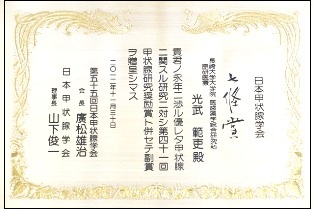 日本甲状腺学会
七條賞
長崎大学大学院 医歯薬学総合研究科
原研医療
光武 範吏殿
貴君ノ永年ニ渉ル優レタ甲状腺
ニ関スル研究ニ対シ第四十一回
甲状腺研究奨励賞ト併セテ副賞
ヲ贈呈シマス
二〇一二年十一月三十日
第五十五回日本甲状腺学会
会長 廣松雄治
日本甲状腺学会
理事長 山下俊一